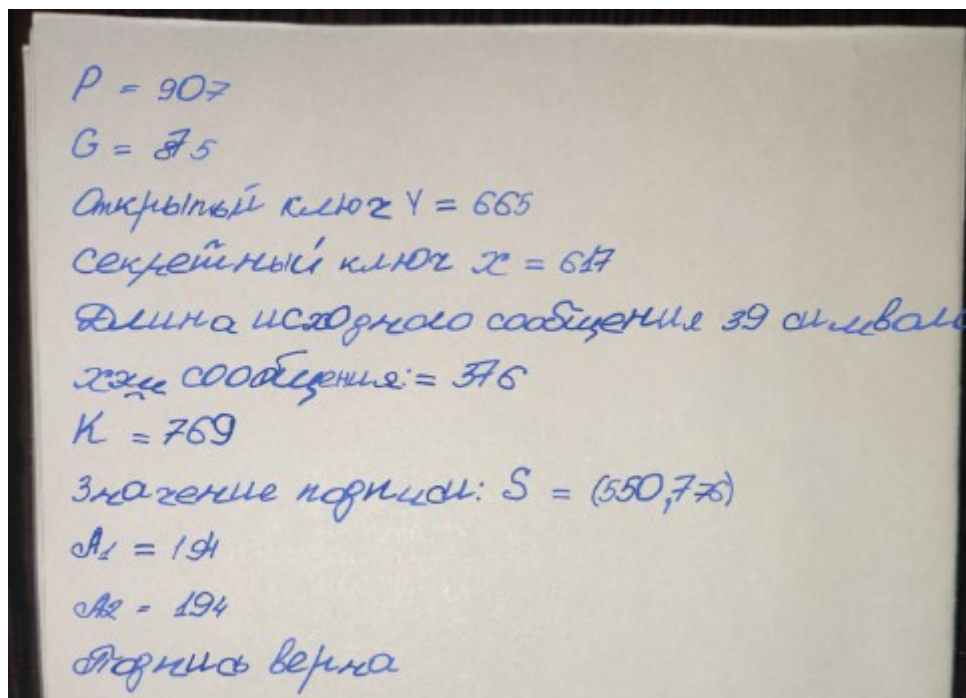 P = 907
G = 875
Открытый ключ Y = 665
Секретный ключ x = 617
Длина исходного сообщения 39 символо
хэш сообщения:= 376
K = 769
Значение подписи: S = (550,776)
A1 = 194
A2 = 194
Подпись верна